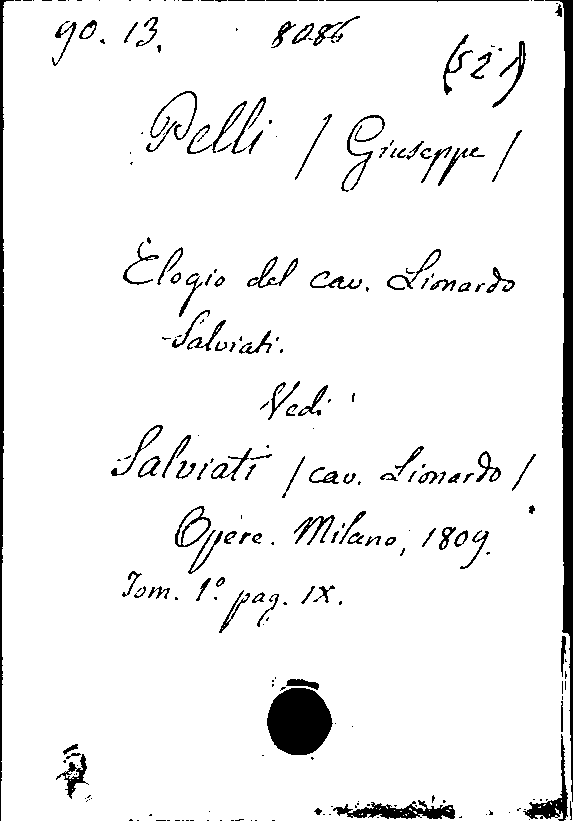 90. 13. 8086
(521)
Pelli / Giuseppe /
Elogio del cav. Lionardo
Salviati.
Vedi
Salviati / cav. Lionardo /
Opere. Milano, 1809.
Tom. 1º pag. IX.